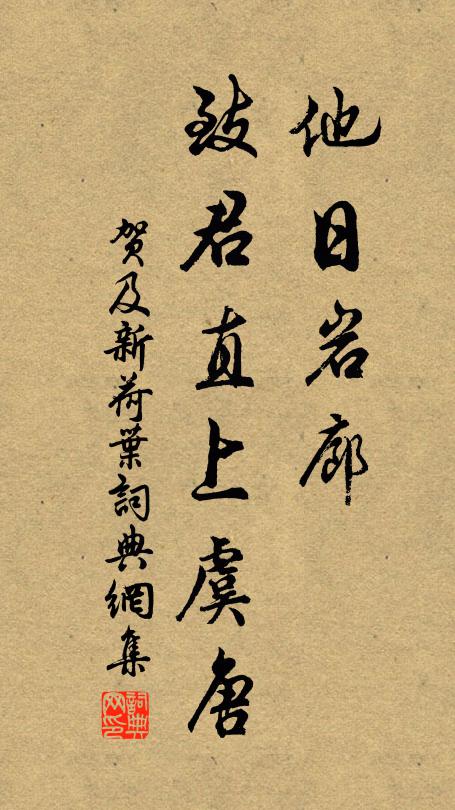 他日岩廊
致君直上虞唐
贺及新荷葉詞典網集
詞典网印